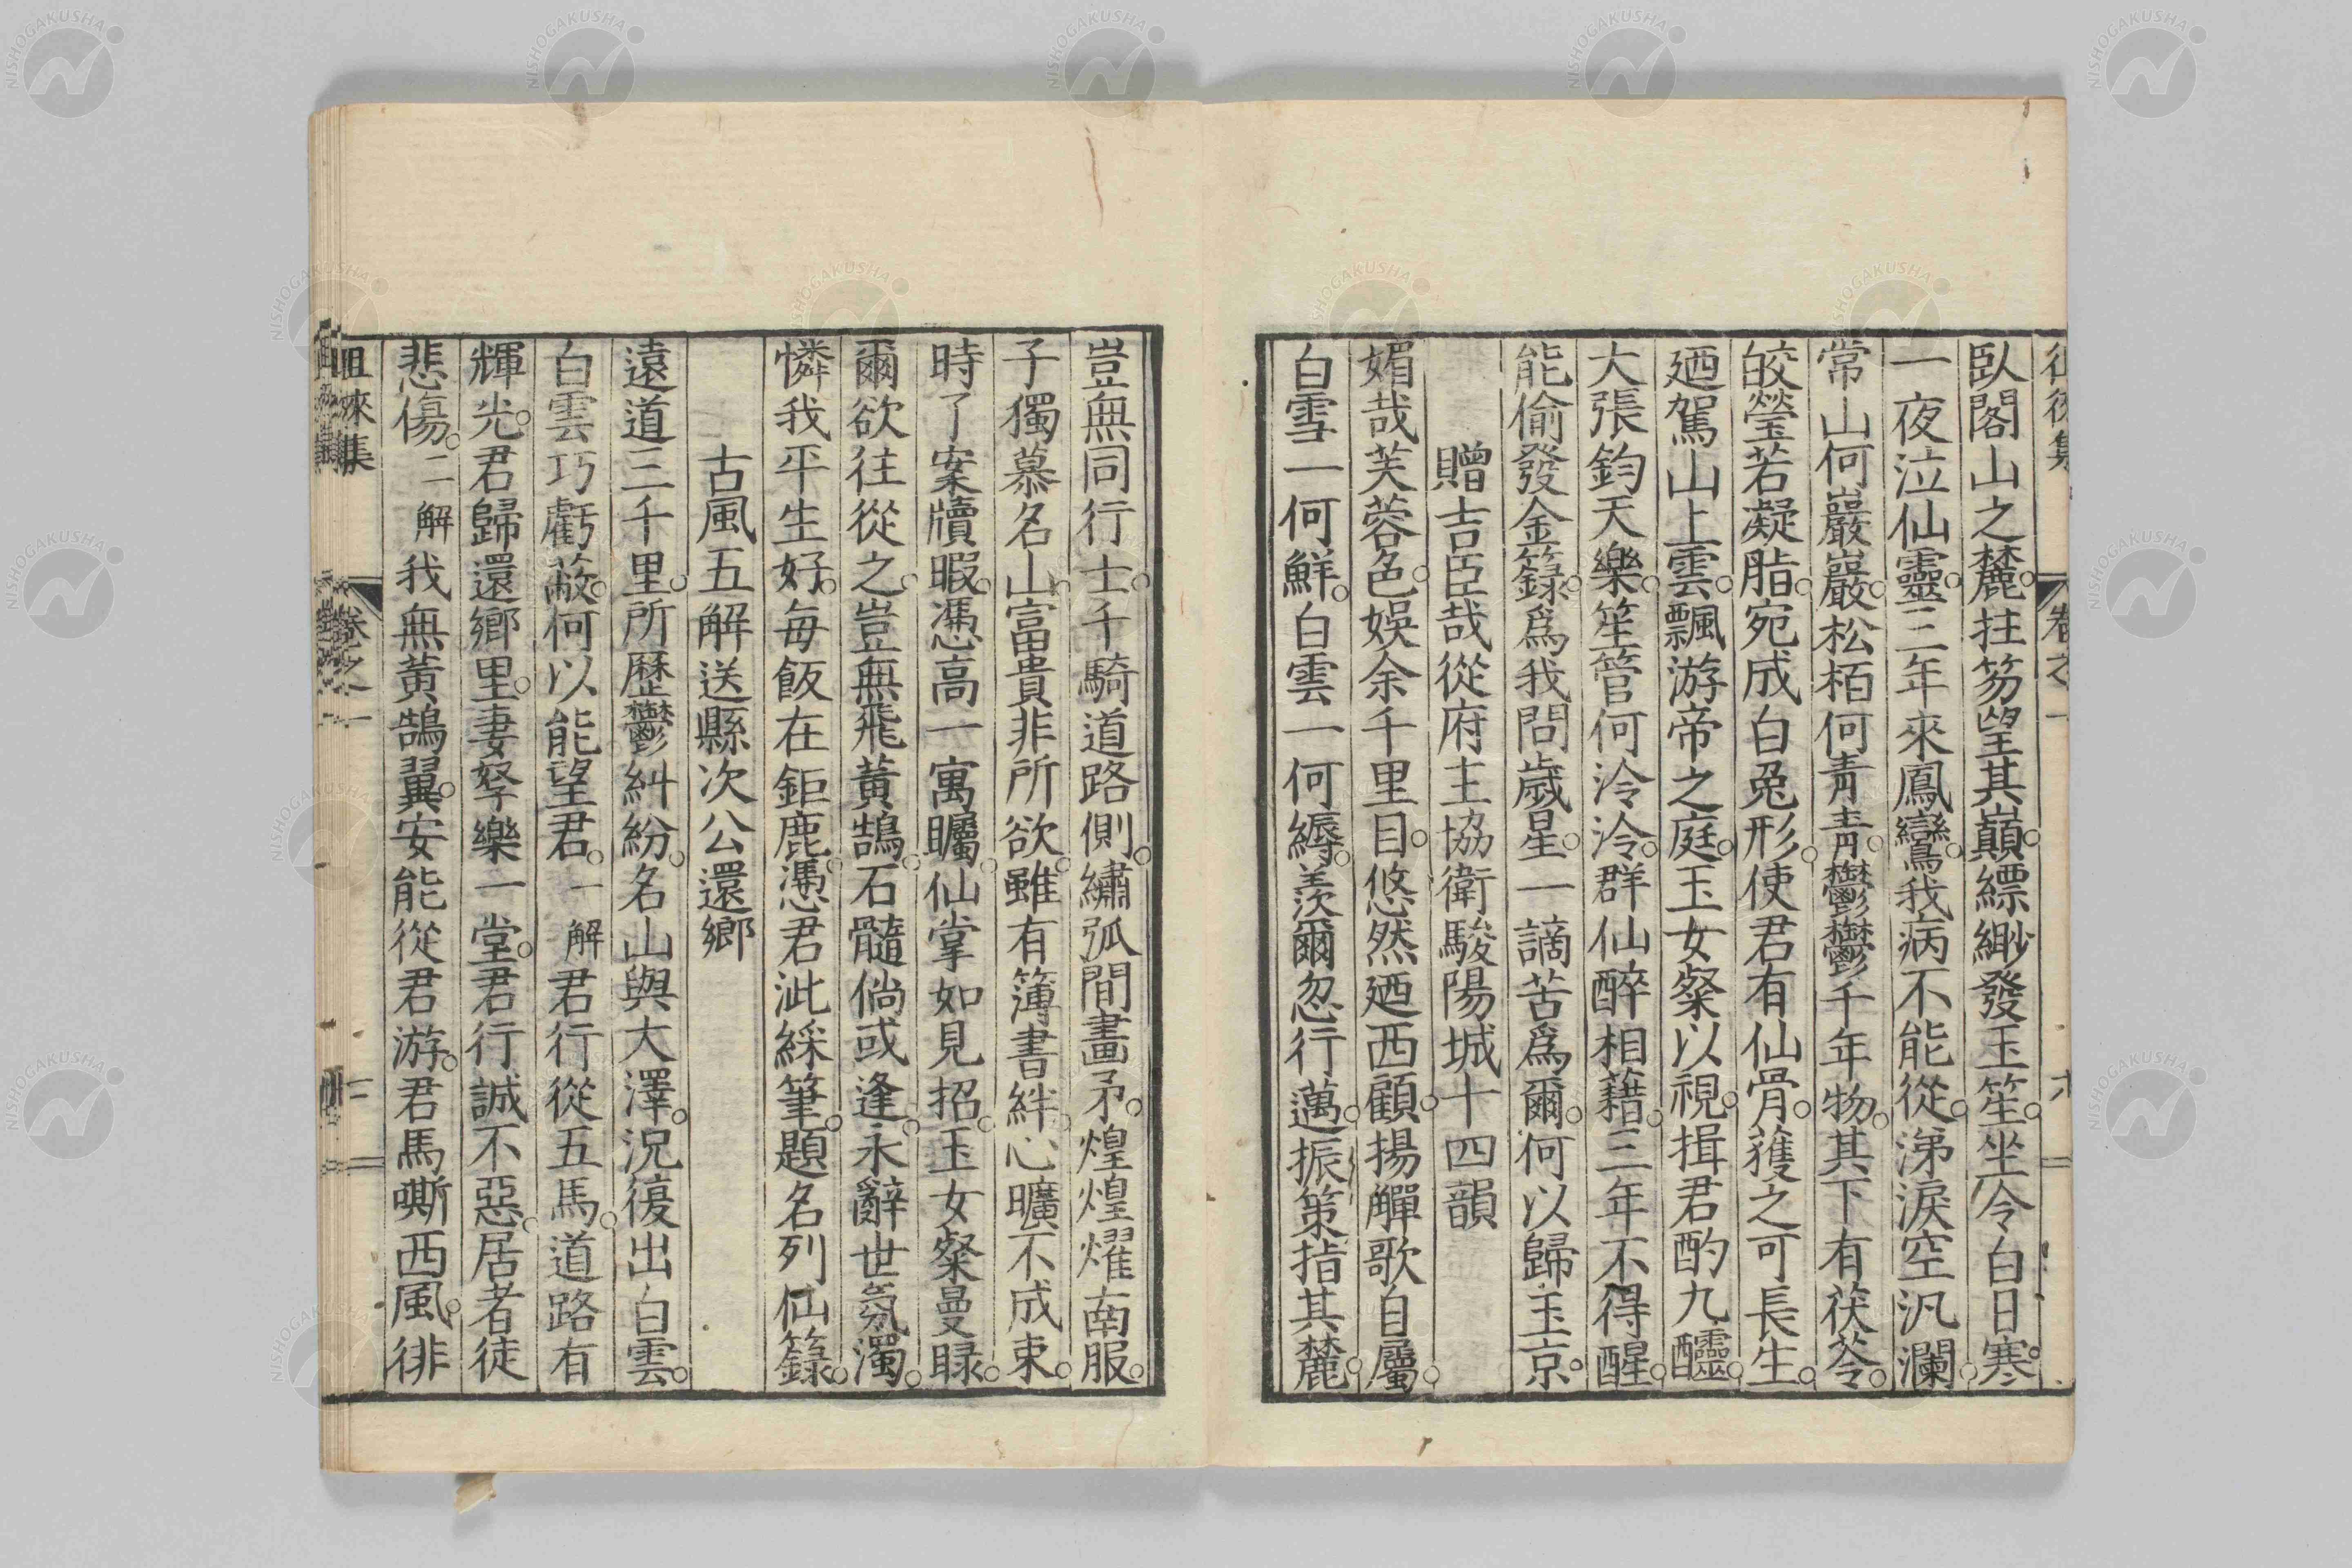 徂徠集 卷之一 六
臥閣山之麓。拄笏望其巔。縹緲發玉笙。坐令白日寒。
一夜泣仙靈。三年來鳳鸞。我病不能從。涕淚空汎瀾。
常山何巖巖。松栢何青青。鬱鬱千年物。其下有茯苓。
皎瑩若凝脂。宛成白兔形。使君有仙骨。穫之可長生。
迺駕山上雲。飄游帝之庭。玉女粲以視。揖君酌九醽。
大張鈞天樂。笙管何泠泠。群仙醉相藉。三年不得醒。
能偷發金籙。爲我問歲星。一謫苦爲爾。何以歸玉京。
贈吉臣哉從府主協衛駿陽城十四韻
媚哉芙蓉色。娛余千里目。悠然迺西顧。揚觶歌自屬。
白雪一何鮮。白雲一何縟。羨爾忽行邁。振策指其麓。
豈無同行士。千騎道路側。繡弧間畫矛。煌煌燿南服。
子獨慕名山。富貴非所欲。雖有簿書絆。心曠不成束。
時了案牘暇。憑高一寓矚。仙掌如見招。玉女粲曼睩。
爾欲往從之。豈無飛黃鵠。石髓倘或逢。永辭世氛濁。
憐我平生好。每飯在鉅鹿。憑君泚綵筆。題名列仙籙。
古風五解送縣次公還鄉
遠道三千里。所歷鬱糾紛。名山與大澤。況復出白雲。
白雲巧虧蔽。何以能望君。一解君行從五馬。道路有
輝光。君歸還鄉里。妻孥樂一堂。君行誠不惡。居者徒
悲傷。二解我無黃鵠翼。安能從君游。君馬嘶西風。徘
徂徠集 卷之一